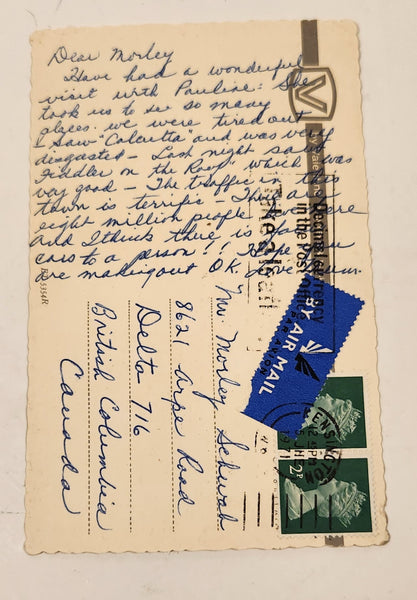 Dear Morley
Have had a wonderful
visit with Pauline: She
took us to see so many
places. we were tired out
I saw "Calcutta" and was very
disgusted - Last night saw
Fiddler on the Roof" which was
very good - The traffic in this
town is terrific - There are
eight million people here
and I think there is
cars to a person!! Hope you
are making out O.K. Love
Mr Morley
8621 Road
Delta 716
British Columbia
Canada
BY AIR MAIL
PAR AVION
KENSINGTON
12 45 PM
2P
V